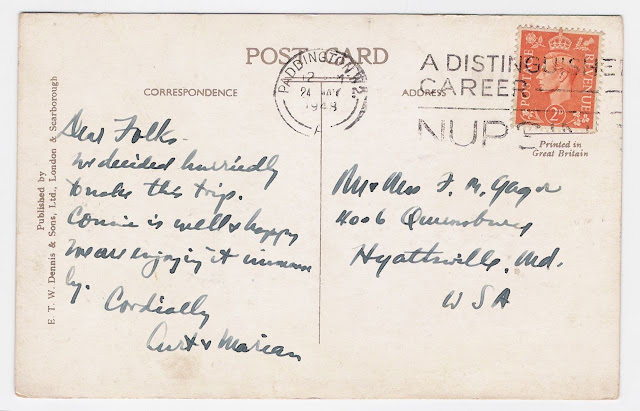 POST CARD
CORRESPONDENCE
ADDRESS
PADDINGTON.W.2.
24
1948
A
A DISTINGUISHED
CAREER
POSTAGE
REVENUE
2D
Printed in
Great Britain
Published by
E. T. W. Dennis & Sons, Ltd., London & Scarborough
Dear Folks -
We decided hurriedly
to make this trip.
Connie is well & happy
We are enjoying it immense
ly.
Cordially
Curt & Marian
Mr & Mrs F. M. Gager
4006 Queensbury
Hyattsville, Md.
USA